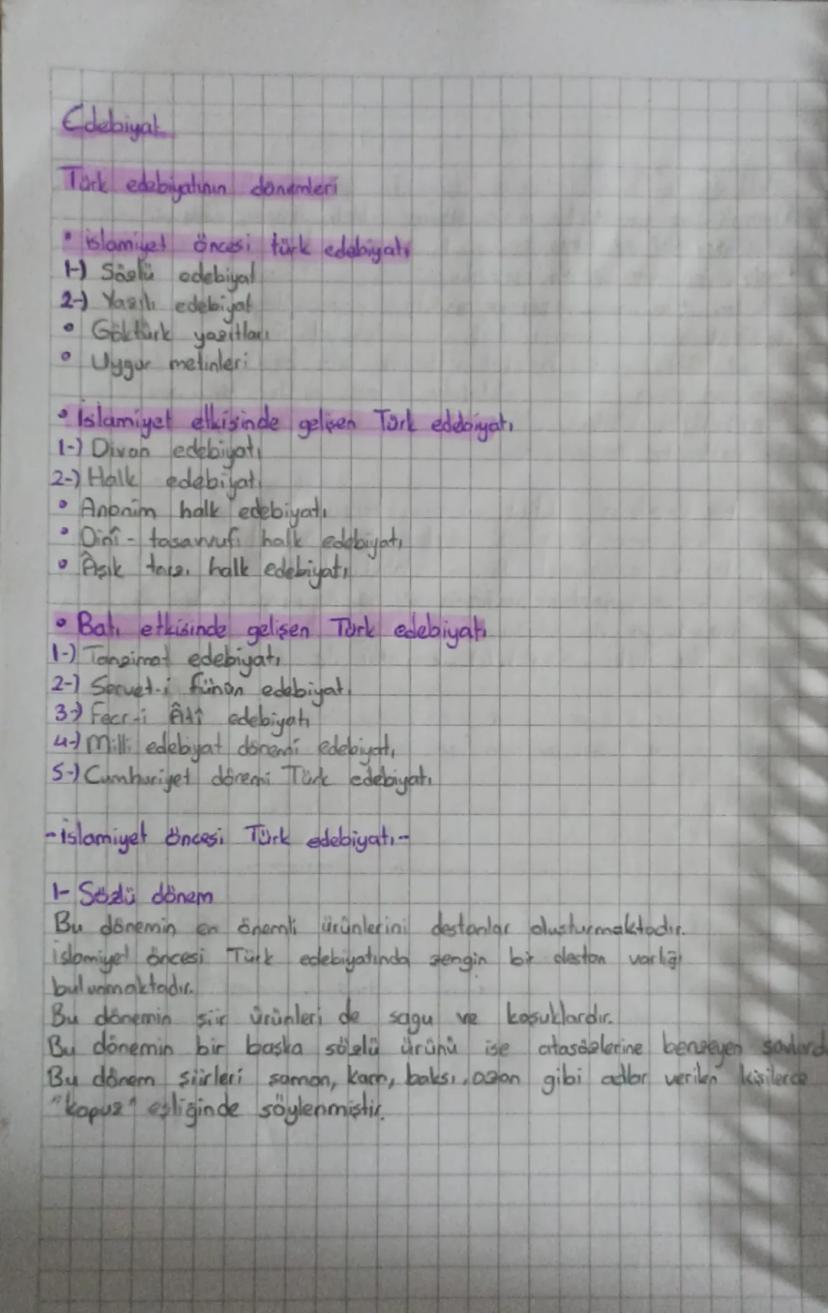 Edebiyat
Türk edebiyatının dönemleri
• islamiyet öncesi türk edebiyatı
1-) Sözlü edebiyat
2-) Yazılı edebiyat
• Göktürk yazıtları
• Uygur metinleri
• İslamiyet etkisinde gelişen Türk edebiyatı
1-) Divan edebiyatı
2-) Halk edebiyatı
• Anonim halk edebiyatı
• Dinî - tasavvufi halk edebiyatı
• Âşık tarzı halk edebiyatı
• Batı etkisinde gelişen Türk edebiyatı
1-) Tanzimat edebiyatı
2-) Servet-i fünun edebiyatı
3-) Fecr-i Âtî edebiyatı
4-) Milli edebiyat dönemi edebiyatı
5-) Cumhuriyet dönemi Türk edebiyatı
- islamiyet öncesi Türk edebiyatı -
1- Sözlü dönem
Bu dönemin en önemli ürünlerini destanlar oluşturmaktadır.
islamiyet öncesi Türk edebiyatında zengin bir destan varlığı
bulunmaktadır.
Bu dönemin şiir ürünleri de sagu ve koşuklardır.
Bu dönemin bir başka sözlü ürünü ise atasözlerine benzeyen
Bu dönem şiirleri şaman, kam, baksı, ozan gibi adlar verilen kişilerce
"kopuz" eşliğinde söylenmiştir.